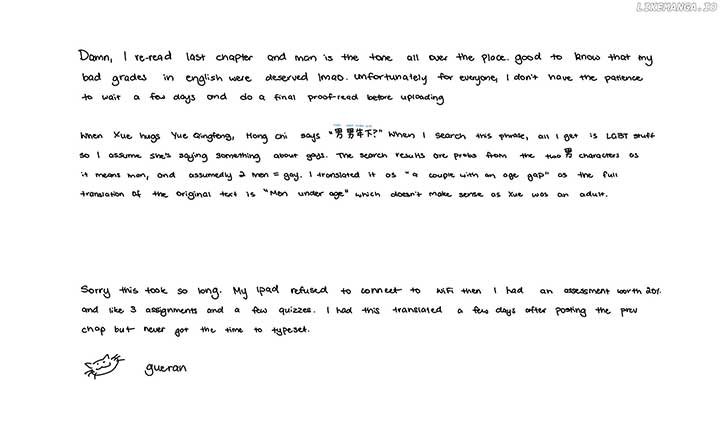 LIKEMANGA.IO
Damn, I re-read last chapter and man is the tone all over the place. good to know that my
bad grades in english were deserved lmao. unfortunately for everyone, I don't have the patience
to wait a few days and do a final proof-read before uploading
When Xue hugs Yue Qingfeng, Hong Chi says "男男年下?" When I search this phrase, all I get is LGBT stuff
so I assume she's saying something about gays. The search results are probs from the two 男 characters as
it means man, and assumedly 2 men = gay. I translated it as "a couple with an age gap" as the full
translation of the original text is "Men under age" which doesn't make sense as Xue was an adult.
Sorry this took so long. My ipad refused to connect to WiFi then I had an assessment worth 20%
and like 3 assignments and a few quizzes. I had this translated a few days after posting the prev
chap but never got the time to typeset.
gueran